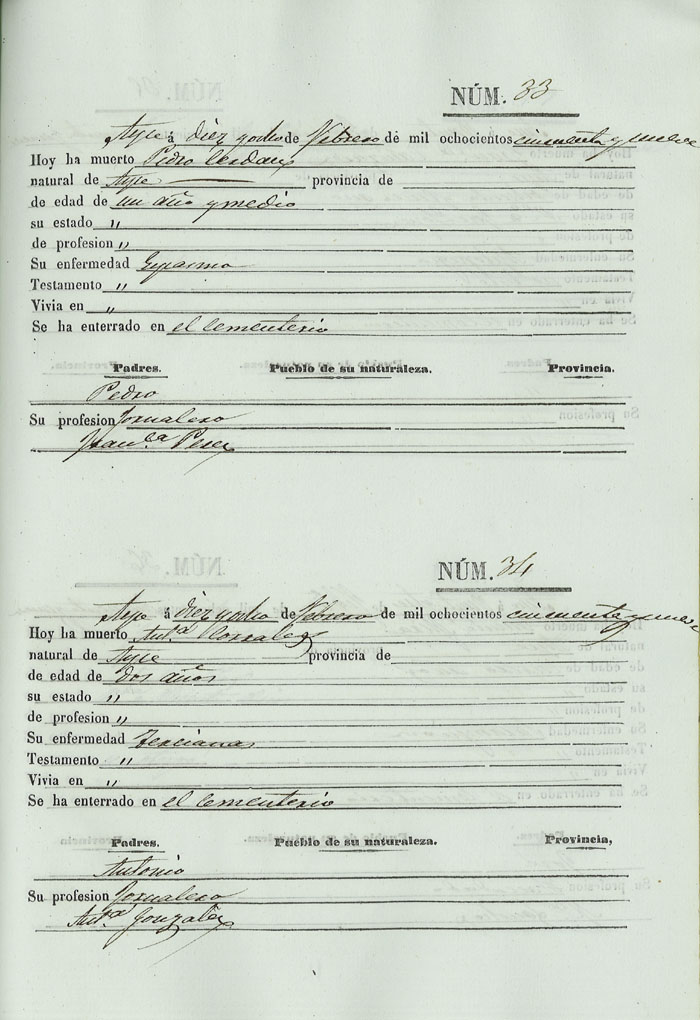 NÚM. 33
Aspe á diez y ocho de Febrero de mil ochocientos cincuenta y nueve
Hoy ha muerto Pedro Cerdan
natural de Aspe provincia de
de edad de un año y medio
su estado "
de profesion "
Su enfermedad Espasmo
Testamento "
Vivia en "
Se ha enterrado en el Cementerio
Padres. Pueblo de su naturaleza. Provincia.
Pedro
Su profesion Jornalero
Fran.ca Perez
NÚM. 34
Aspe á diez y ocho de Febrero de mil ochocientos cincuenta y nueve
Hoy ha muerto Ant.a Corrales
natural de Aspe provincia de
de edad de dos años
su estado "
de profesion "
Su enfermedad Tercianas
Testamento "
Vivia en "
Se ha enterrado en el Cementerio
Padres. Pueblo de su naturaleza. Provincia,
Antonio
Su profesion Jornalero
Ant.a Gonzalez